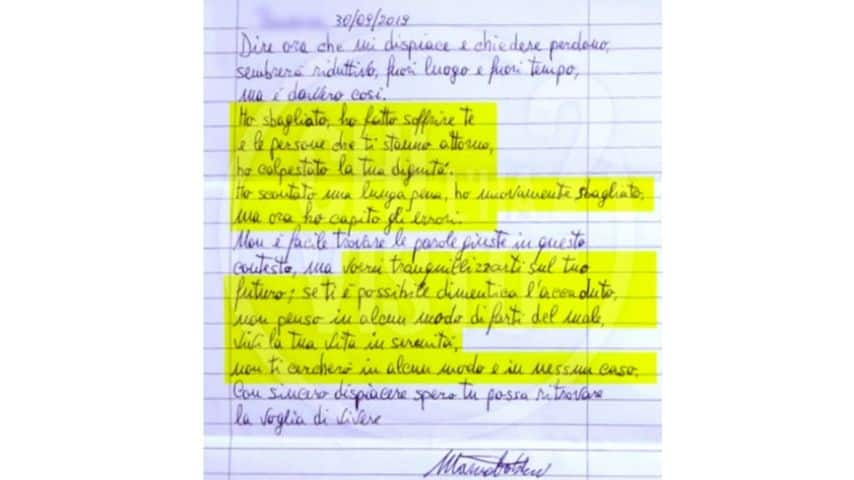 30/09/2019
Dire ora che mi dispiace e chiedere perdono,
sembrerà riduttivo, fuori luogo e fuori tempo,
ma è davvero così.
Ho sbagliato, ho fatto soffrire te
e le persone che ti stanno attorno,
ho calpestato la tua dignità.
Ho scontato una lunga pena, ho nuovamente sbagliato,
ma ora ho capito gli errori.
Non è facile trovare le parole giuste in questo
contesto, ma vorrei tranquillizzarti sul tuo
futuro; se ti è possibile dimentica l'accaduto,
non penso in alcun modo di farti del male,
vivi la tua vita in serenità,
non ti cercherò in alcun modo e in nessun caso.
Con sincero dispiacere spero tu possa ritrovare
la voglia di vivere